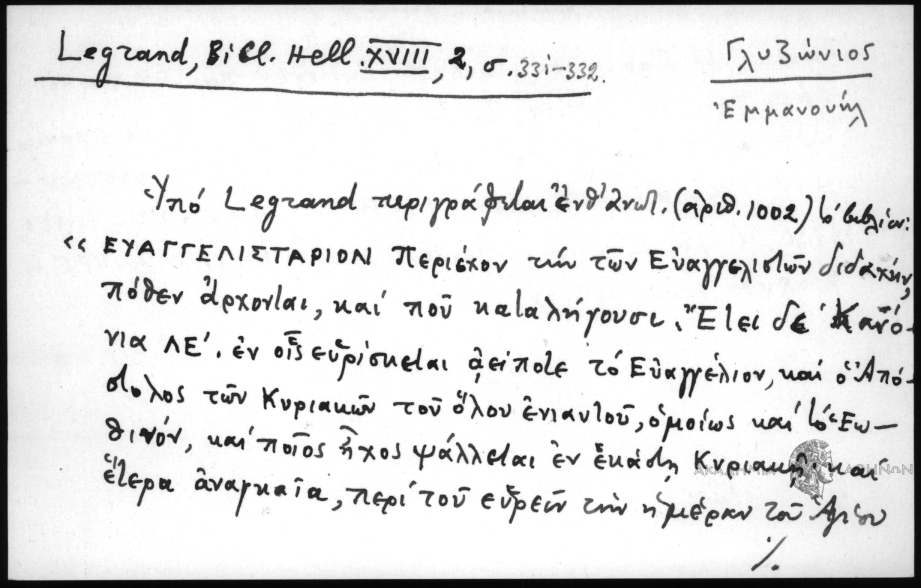 Legrand, Bibl. Hell. XVIII, 2, σ. 331-332.
Γλυζώνιος
Ἐμμανουήλ
Ὑπό Legrand περιγράφεται ἐνθ' ἀνωτ. (ἀριθ. 1002) τό βιβλίον:
« ΕΥΑΓΓΕΛΙΣΤΑΡΙΟΝ Περιέχον τήν τῶν Εὐαγγελιστῶν διδαχήν,
πόθεν ἄρχονται, καί ποῦ καταλήγουσι. Ἔτει δέ Κανό-
νια ΛΕ'. ἐν οἷς εὑρίσκεται ἀείποτε τό Εὐαγγέλιον, καί ὁ Ἀπό-
στολος τῶν Κυριακῶν τοῦ ὅλου ἐνιαυτοῦ, ὁμοίως καί τό Ἑω-
θινόν, καί ποῖος ἦχος ψάλλεται ἐν ἑκάστῃ Κυριακῇ, καί
ἕτερα ἀναγκαῖα, περί τοῦ εὑρεῖν τήν ἡμέραν τοῦ Ἁγίου
./.
ΑΚΑΔΗΜΙΑ ΑΘΗΝΩΝ